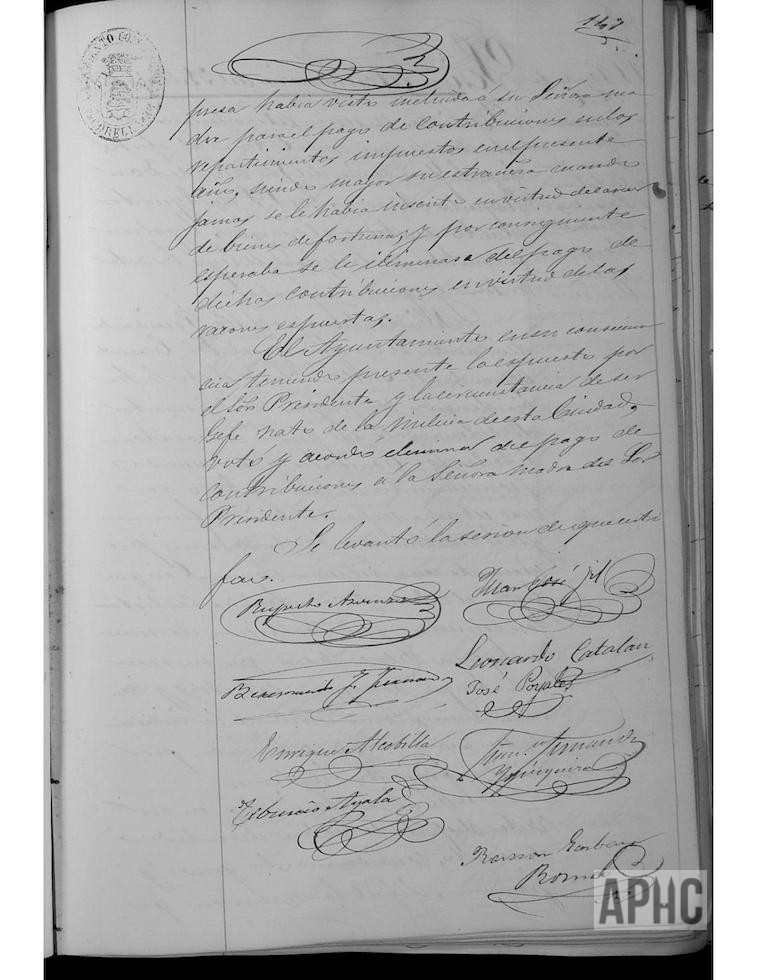 147
presa habia visto incluida á su Señora ma
dre para el pago de contribuciones en los
repartimientos impuestos en el presente
año, siendo mayor su estrañeza cuando
jamas se le habia inscrito en virtud de carecer
de bienes de fortuna; y por consiguiente
esperaba se le eliminase del pago de
dichas contribuciones en virtud de las
razones espuestas.
El Ayuntamiento en su consecuen
cia teniendo presente lo espuesto por
el Sor Presidente y la circunstancia de ser
Gefe nato de la milicia de esta Ciudad,
votó y acordó eliminar del pago de
contribuciones á la Señora madre del Sor
Presidente.
Se levantó la sesion de que certi
fico.
Ruperto
Juan José Gil
Leonardo Catalan
José Poyales
Enrique Alcobilla
Tiburcio Ayala
Ramon
APHC